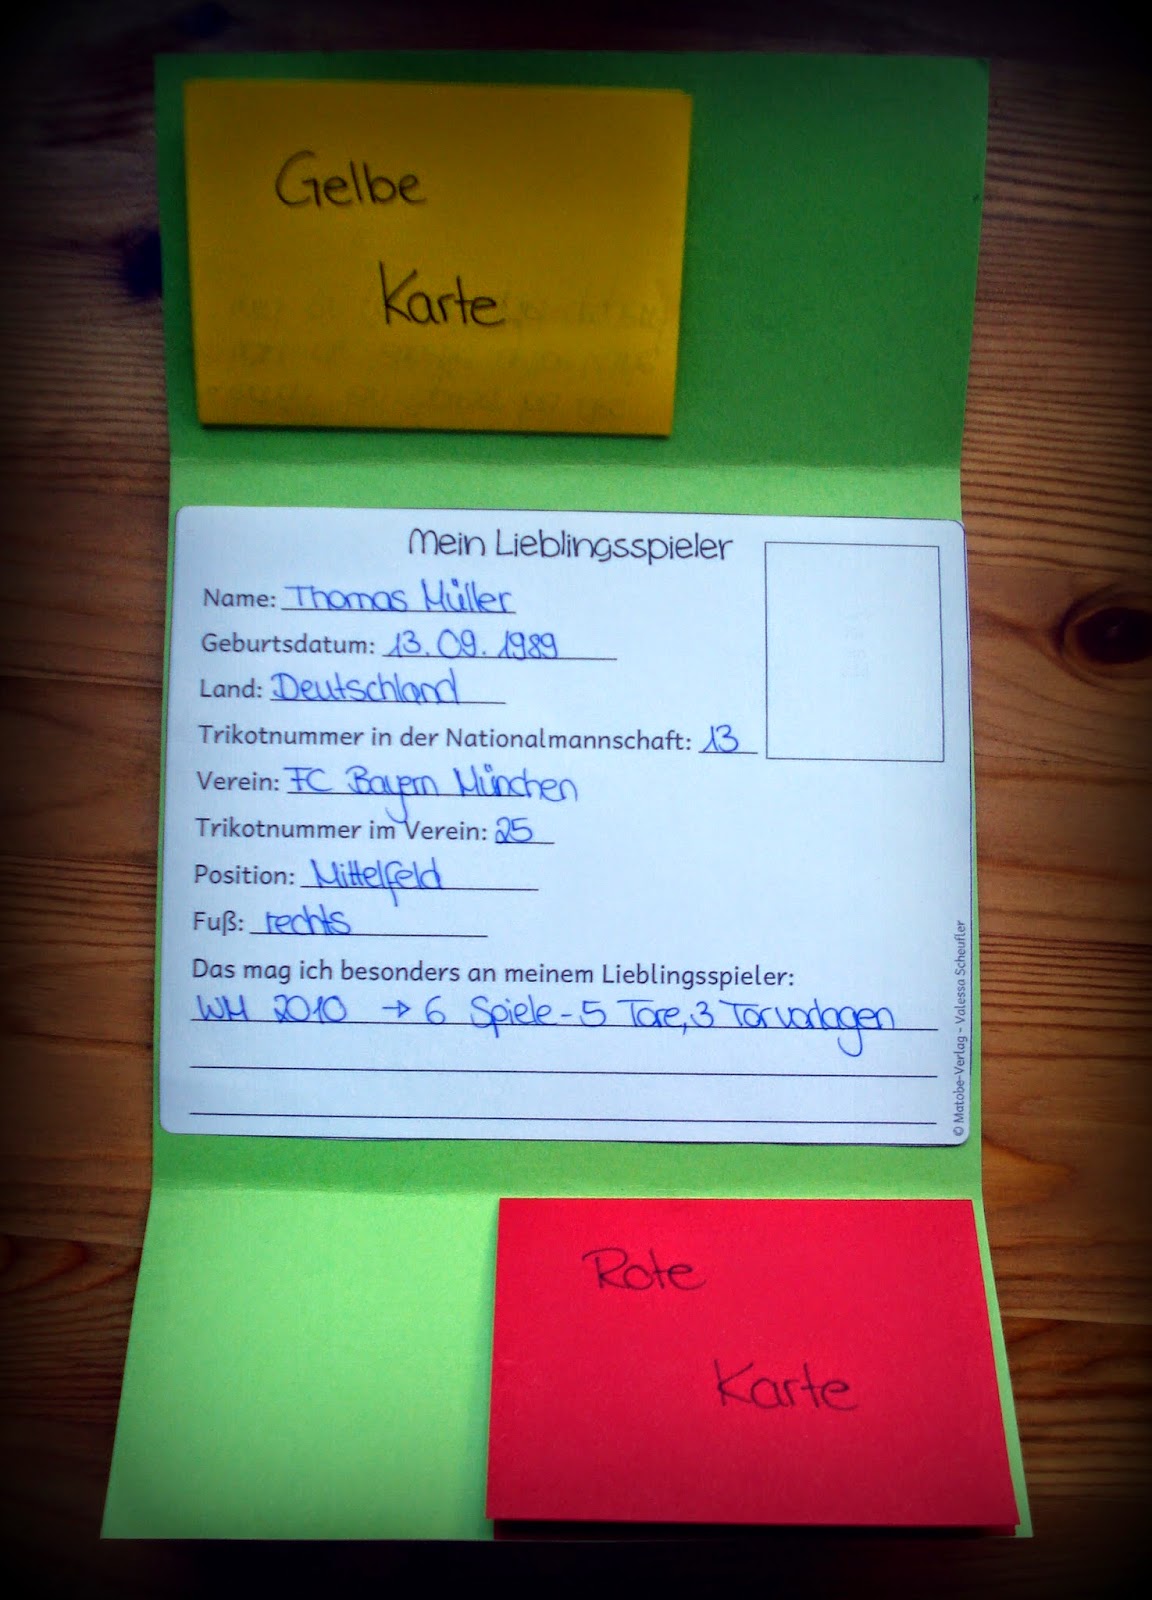 Gelbe
Karte
Mein Lieblingsspieler
Name: Thomas Müller
Geburtsdatum: 13.09.1989
Land: Deutschland
Trikotnummer in der Nationalmannschaft: 13
Verein: FC Bayern München
Trikotnummer im Verein: 25
Position: Mittelfeld
Fuß: rechts
Das mag ich besonders an meinem Lieblingsspieler:
WM 2010 → 6 Spiele - 5 Tore, 3 Torvorlagen
© Matobe-Verlag - Valessa Scheufler
Rote
Karte